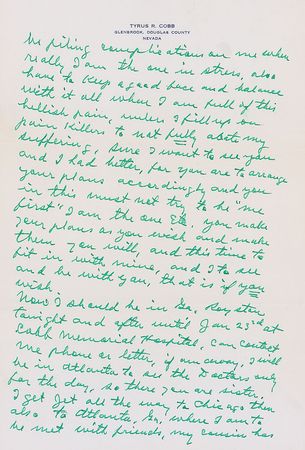 TYRUS R. COBB
GLENBROOK, DOUGLAS COUNTY
NEVADA
be piling complications on me when
really I am the one in stress, also
have to keep a good face and balance
with it all when I am full of this
hellish pain, unless I fill up on
pain killers to not fully abate my
suffering, sure I want to see you
and I had better, for you are to arrange
your plans accordingly and you
in this must not try to be "me
first" I am the one Etc, you make
your plans as you wish and make
them you will, and this time to
fit in with mine, and I to see
and be with you, that is if you
wish
Now I should be in Ga, Royston
tonight and after until Jan 23rd at
Cobb Memorial Hospital, can contact
me phone or letter, if am away, I will
be in Atlanta to see the Doctors only
for the day, so there you are sister,
I get all the way to Chicago then
also to Atlanta, Ga, where I am to
be met with friends, my cousin has